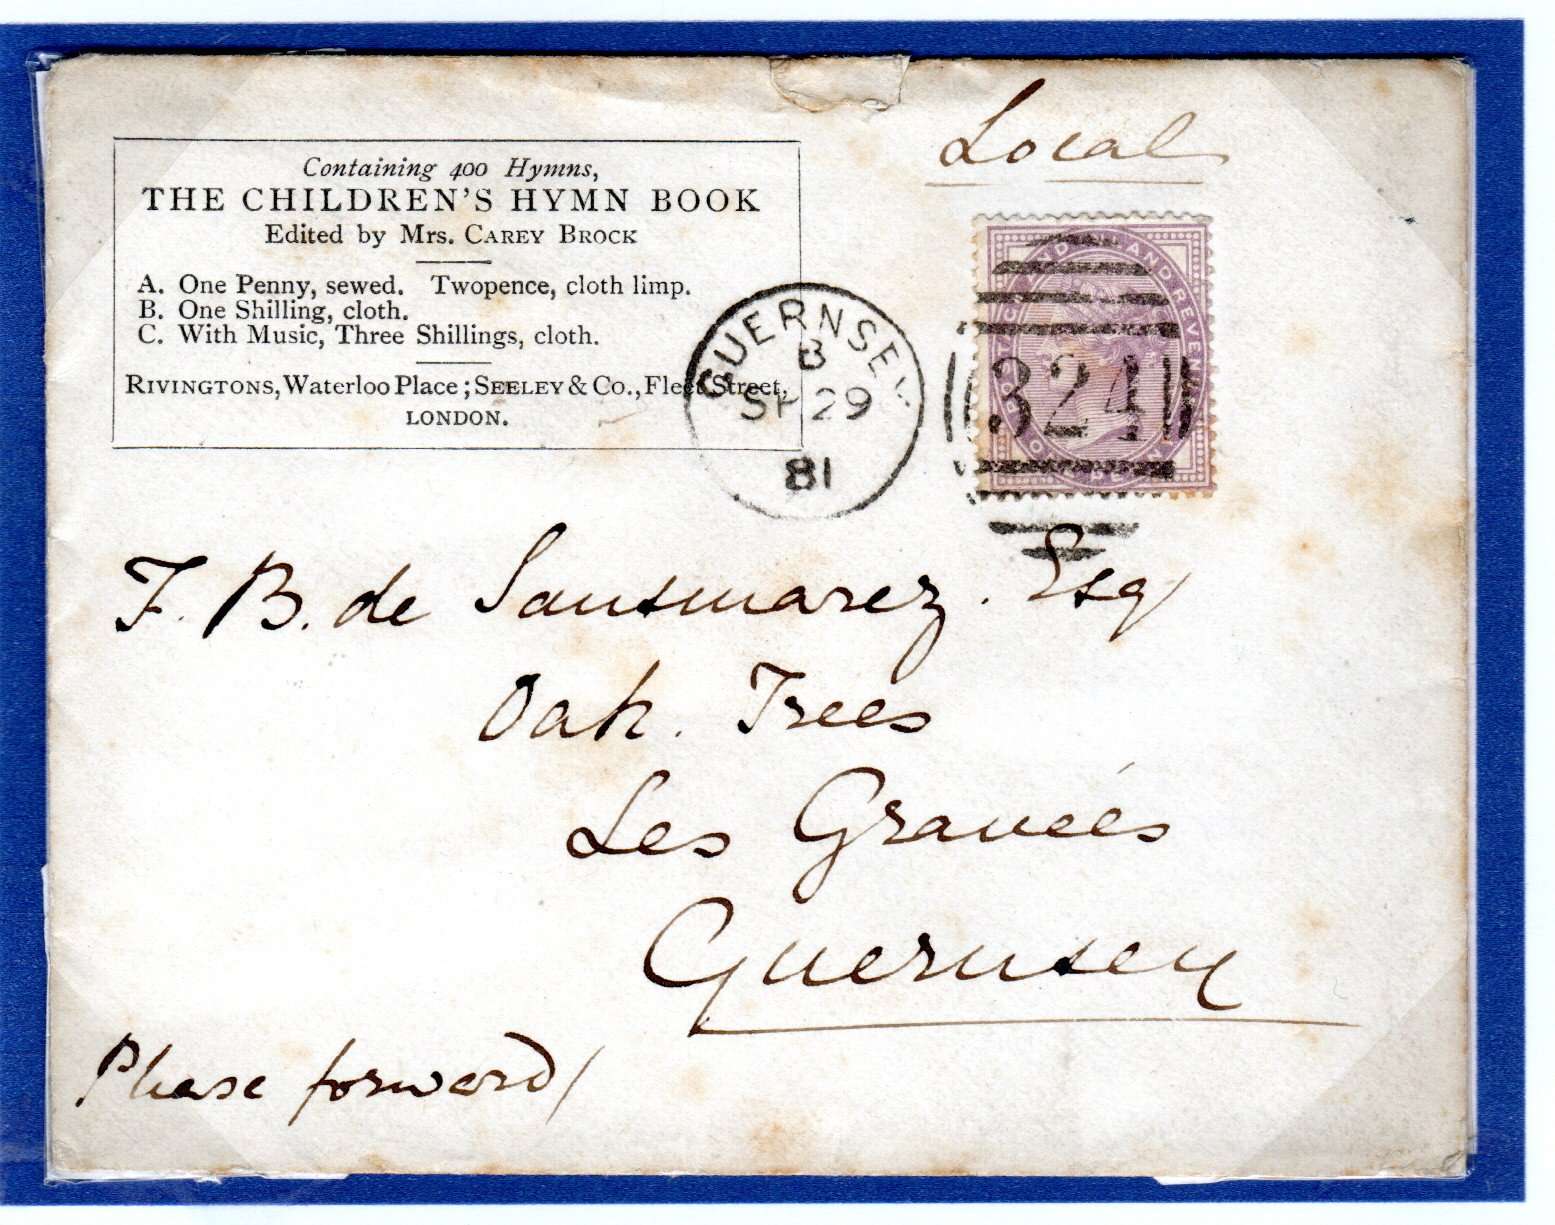 Local
Containing 400 Hymns,
THE CHILDREN'S HYMN BOOK
Edited by Mrs. CAREY BROCK
A. One Penny, sewed. Twopence, cloth limp.
B. One Shilling, cloth.
C. With Music, Three Shillings, cloth.
RIVINGTONS, Waterloo Place; SEELEY & Co., Fleet Street,
LONDON.
GUERNSEY
B
SP 29
81
324
F. B. de Sausmarez. Esq
Oak Trees
Les Gravées
Guernsey
Please forward